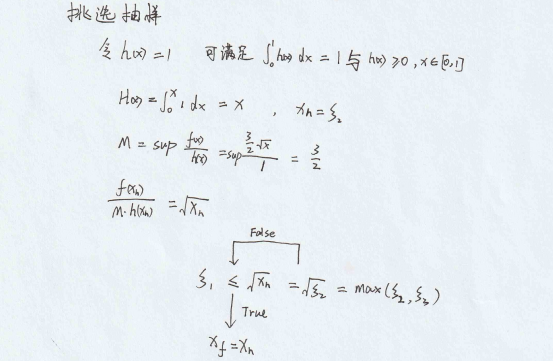 挑选抽样
令 h(x)=1 可满足 ∫₀¹h(x) dx = 1 与 h(x) ≥ 0, x∈[0,1]
H(x) = ∫₀ˣ 1 dx = x , xₕ = ξ₂
M = sup f(x)/h(x) = sup (3/2 √x)/1 = 3/2
f(xₕ)/(M·h(xₕ)) = √xₕ
False
ξ₁ ≤ √xₕ = √ξ₂ = max(ξ₂, ξ₃)
True
X_f = Xₕ